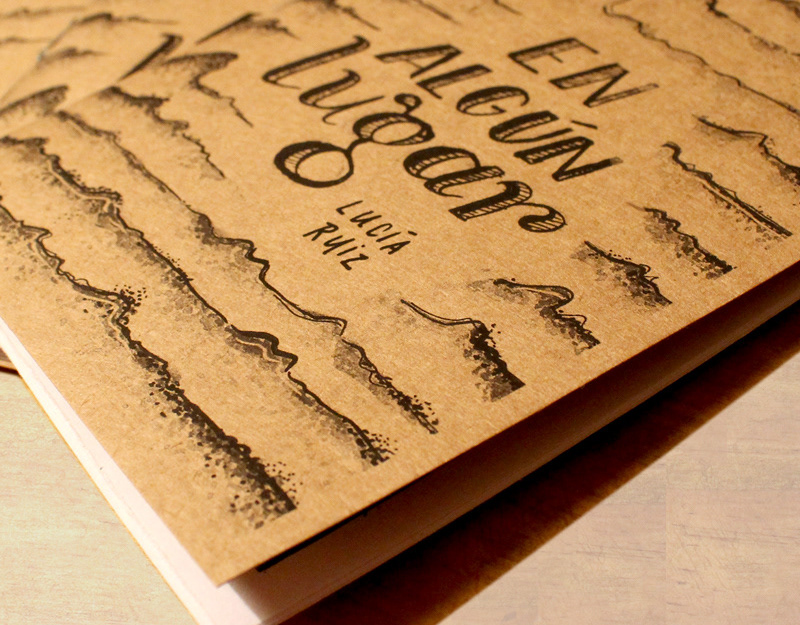 EN
ALGÚN
lugar
LUCÍA
RUiz